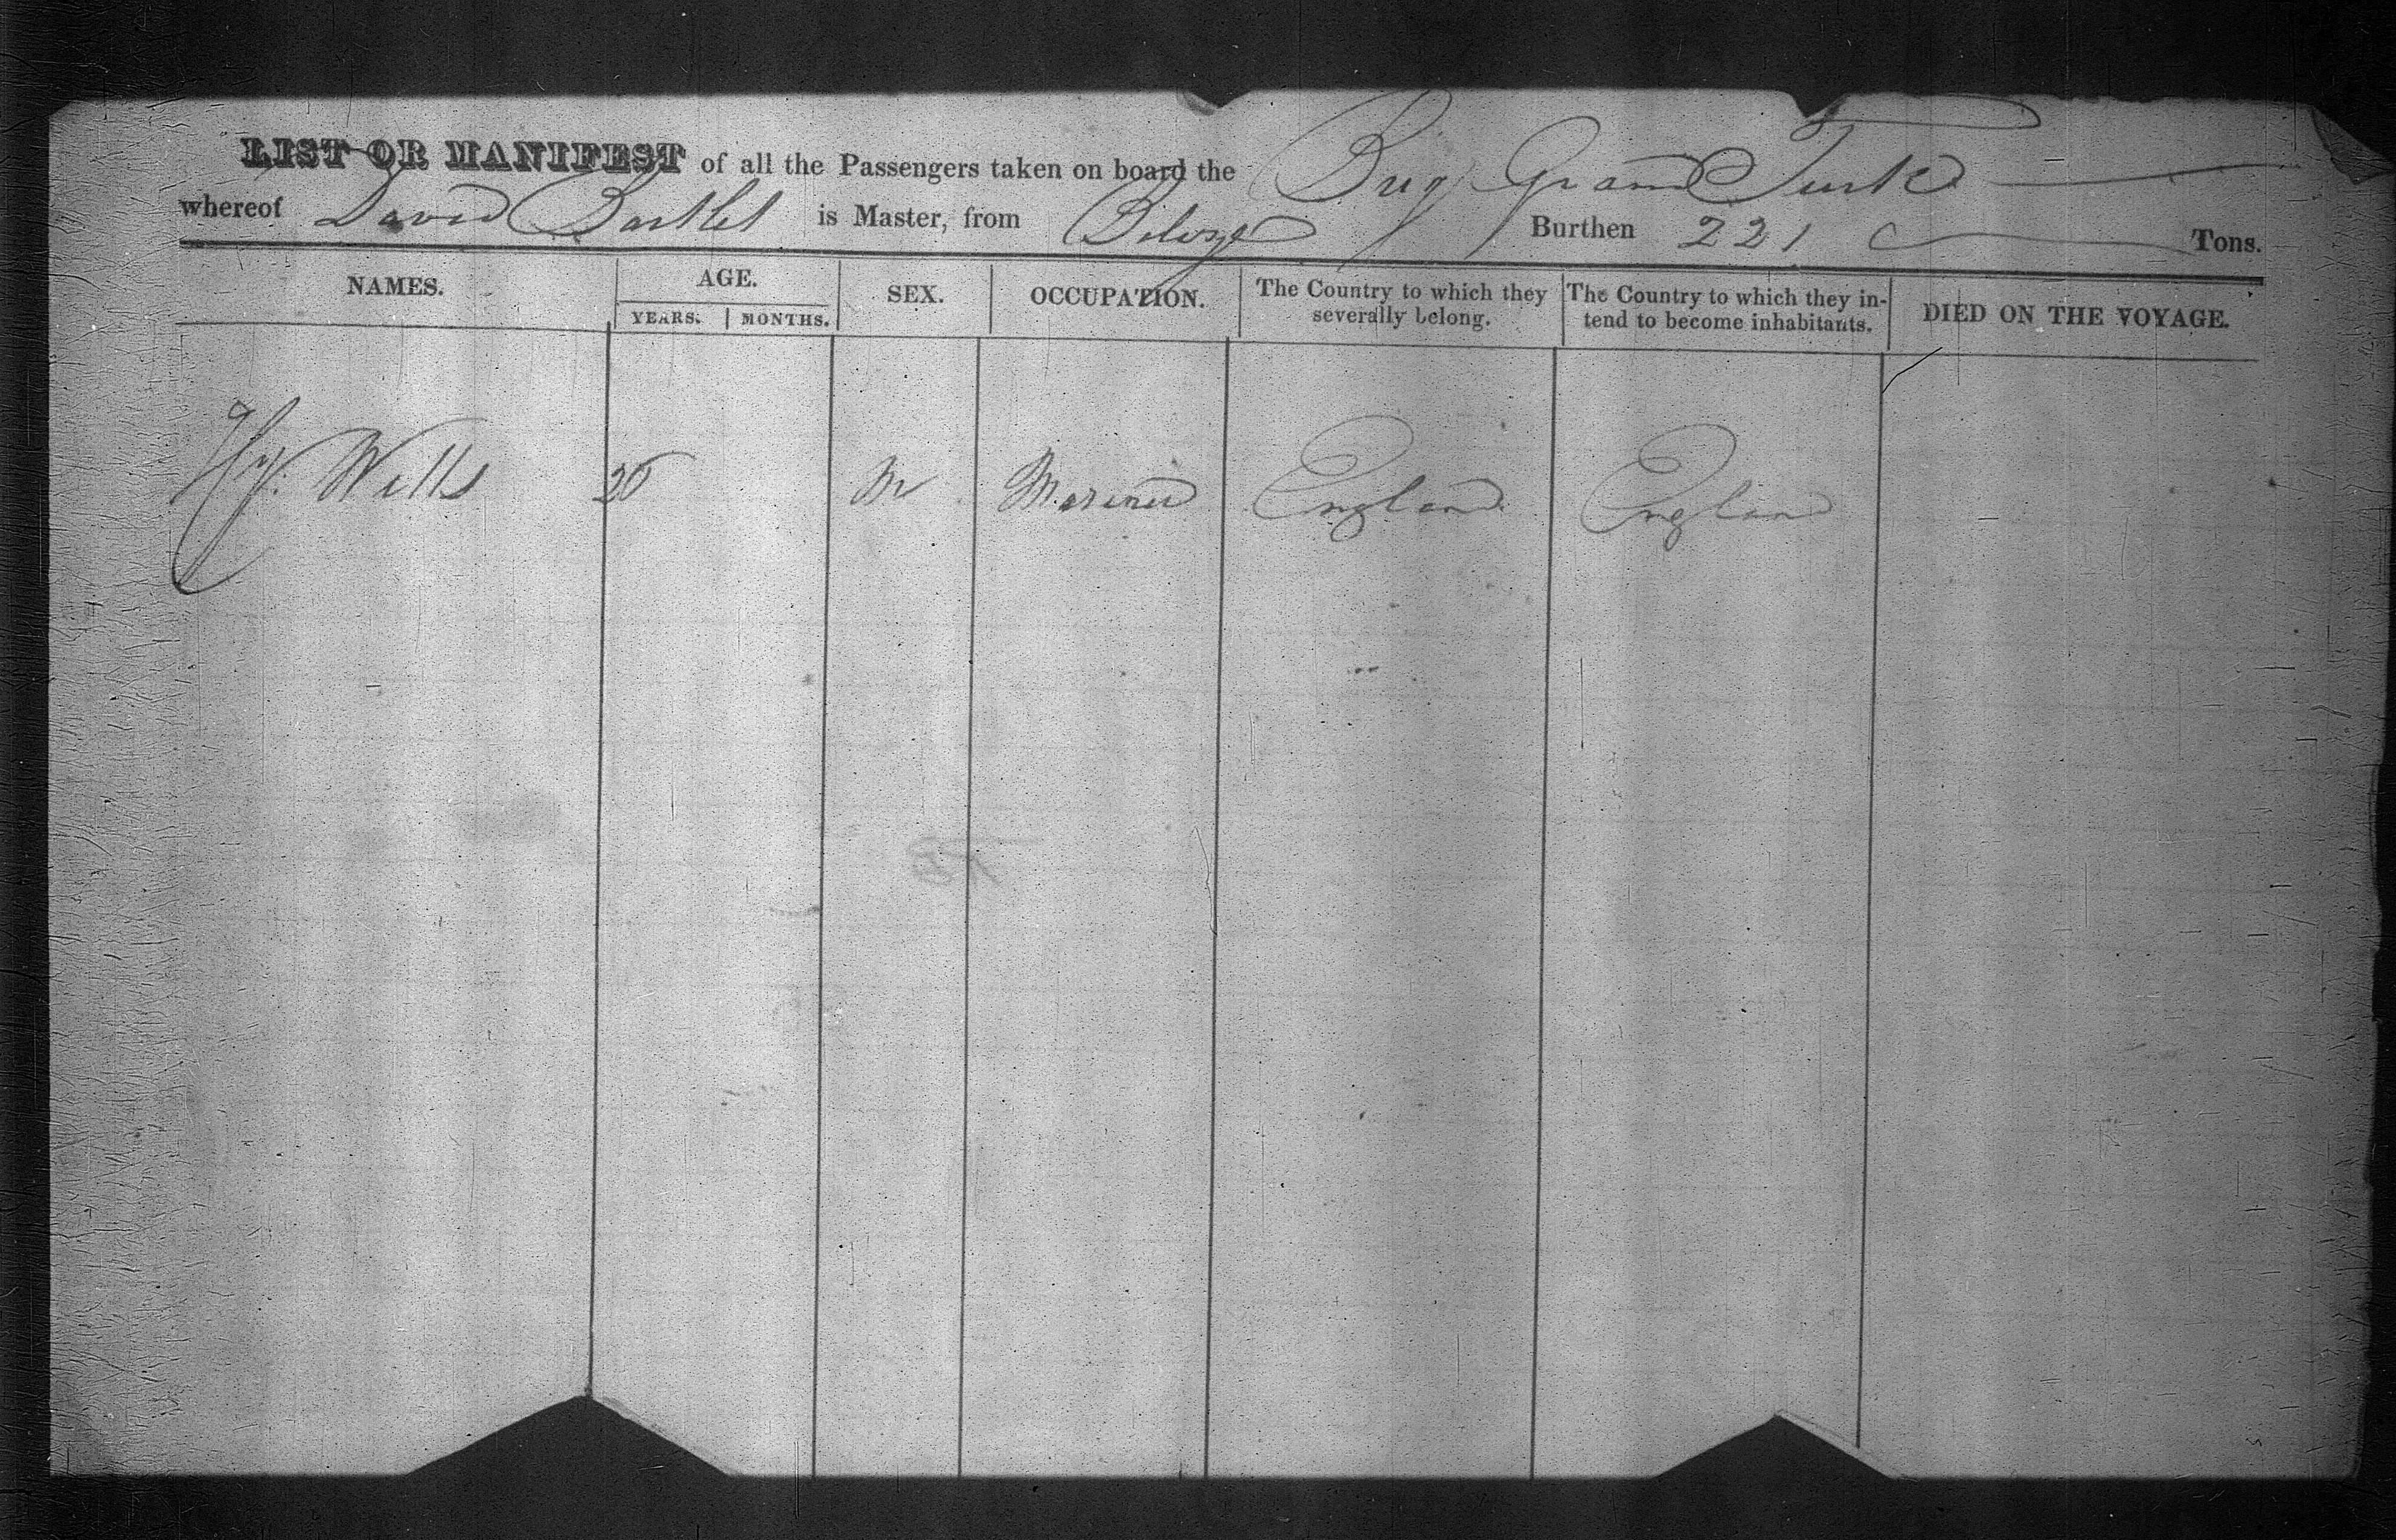 LIST OR MANIFEST of all the Passengers taken on board the Brig Grand Turk
whereof David Bartlet is Master, from Belize Burthen 221 Tons.
NAMES. AGE. SEX. OCCUPATION. The Country to which they severally belong. The Country to which they intend to become inhabitants. DIED ON THE VOYAGE.
YEARS. MONTHS.
Hy. Wells 20 M Mariner England England